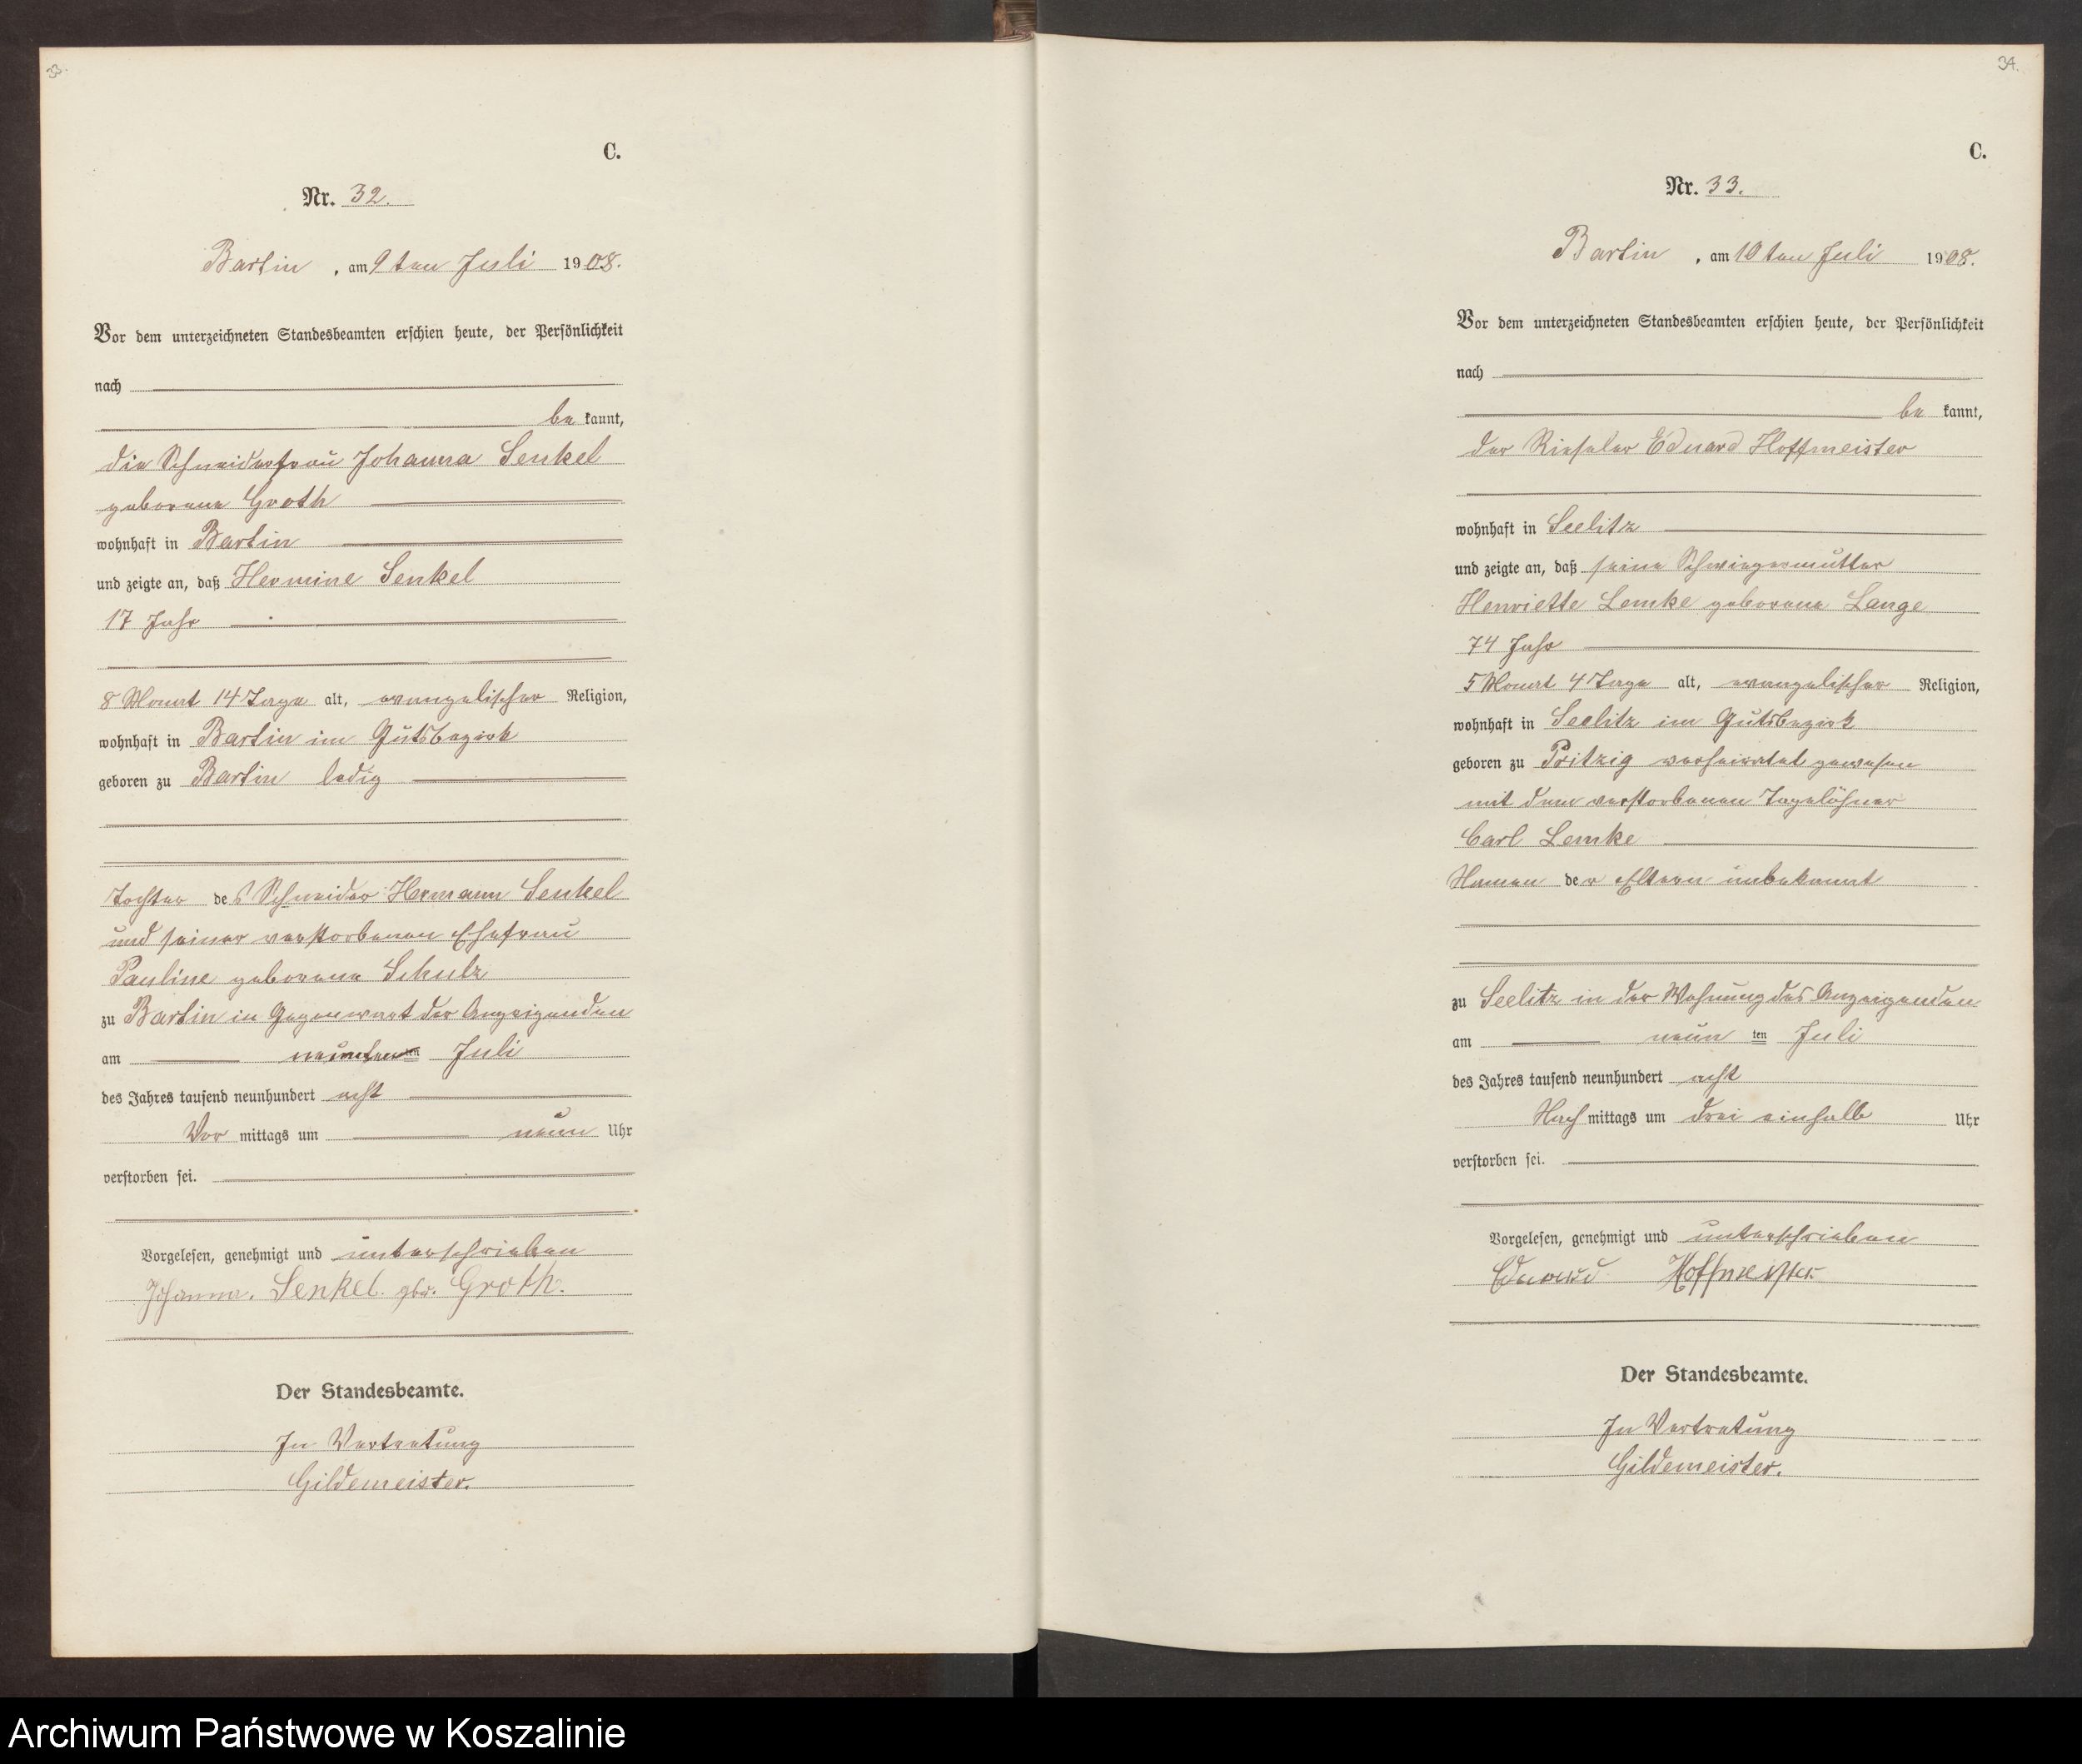 33.
C.
Nr. 32.
Bartin, am 9ten Juli 1908.
Vor dem unterzeichneten Standesbeamten erschien heute, der Persönlichkeit
nach
be kannt,
die Schneiderfrau Johanna Senkel
geborene Groth
wohnhaft in Bartin
und zeigte an, daß Hermine Senkel
17 Jahr
8 Monat 14 Tage alt, evangelischer Religion,
wohnhaft in Bartin im Gutsbezirk
geboren zu Bartin ledig
Tochter des Schneider Hermann Senkel
und seiner verstorbenen Ehefrau
Pauline geborene Schulz
zu Bartin in Gegenwart der Anzeigenden
am neunten Juli
des Jahres tausend neunhundert acht
Vor mittags um neun Uhr
verstorben sei.
Vorgelesen, genehmigt und unterschrieben
Johanna. Senkel. gbr. Groth.
Der Standesbeamte.
In Vertretung
Gildemeister.
34.
C.
Nr. 33.
Bartin, am 10ten Juli 1908.
Vor dem unterzeichneten Standesbeamten erschien heute, der Persönlichkeit
nach
be kannt,
der Rieseler Eduard Hoffmeister
wohnhaft in Seelitz
und zeigte an, daß seine Schwiegermutter
Henriette Lemke geborene Lange
74 Jahr
5 Monat 4 Tage alt, evangelischer Religion,
wohnhaft in Seelitz im Gutsbezirk
geboren zu Pritzig verheiratet gewesen
mit dem verstorbenen Tagelöhner
Carl Lemke
Namen der Eltern unbekannt
zu Seelitz in der Wohnung des Anzeigenden
am neun ten Juli
des Jahres tausend neunhundert acht
Nach mittags um drei einhalb Uhr
verstorben sei.
Vorgelesen, genehmigt und unterschrieben
Eduard Hoffmeister
Der Standesbeamte.
In Vertretung
Gildemeister.
Archiwum Państwowe w Koszalinie